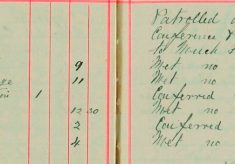 Patrolled
Conference &
to Much
9 Met no
11 Met no
1 Conferred
12.30 Met no
2 Conferred
4 Met no